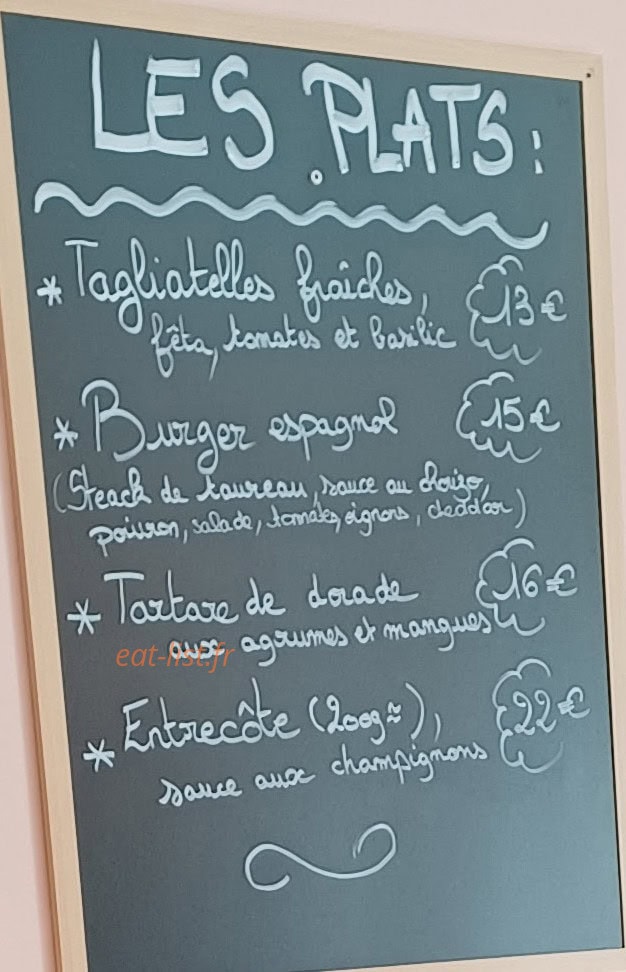 LES PLATS :
* Tagliatelles fraîches, 13 €
fêta, tomates et basilic
* Burger espagnol 15 €
(Steack de taureau, sauce au chorizo,
poivron, salade, tomates, oignons, cheddar)
* Tartare de dorade 16 €
aux agrumes et mangues
eat-list.fr
* Entrecôte (200g ≈), 22 €
sauce aux champignons